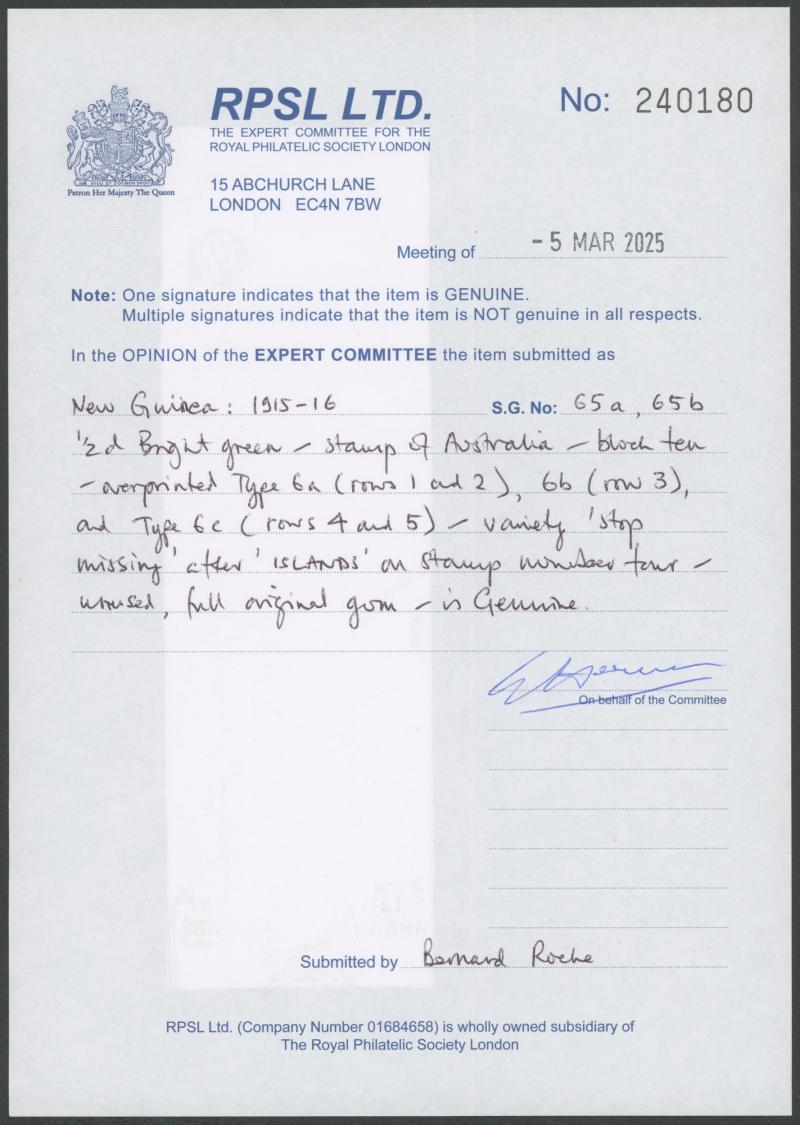 RPSL LTD.
No: 240180
THE EXPERT COMMITTEE FOR THE
ROYAL PHILATELIC SOCIETY LONDON
15 ABCHURCH LANE
LONDON EC4N 7BW
Patron Her Majesty The Queen
Meeting of - 5 MAR 2025
Note: One signature indicates that the item is GENUINE.
Multiple signatures indicate that the item is NOT genuine in all respects.
In the OPINION of the EXPERT COMMITTEE the item submitted as
New Guinea: 1915-16 S.G. No: 65a, 65b
1/2d Bright green - stamp of Australia - block ten
- overprinted Type 6a (rows 1 and 2), 6b (row 3),
and Type 6c (rows 4 and 5) - variety 'stop
missing' after 'ISLANDS' on stamp number four -
unused, full original gum - is Genuine.
On behalf of the Committee
Submitted by Bernard Roche
RPSL Ltd. (Company Number 01684658) is wholly owned subsidiary of
The Royal Philatelic Society London